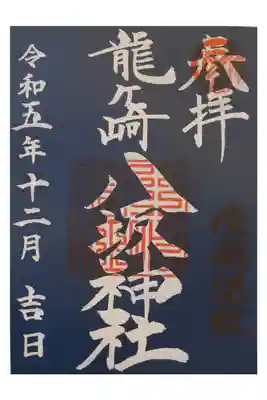 奉拝
龍ヶ崎
八坂神社
令和五年十二月 吉日